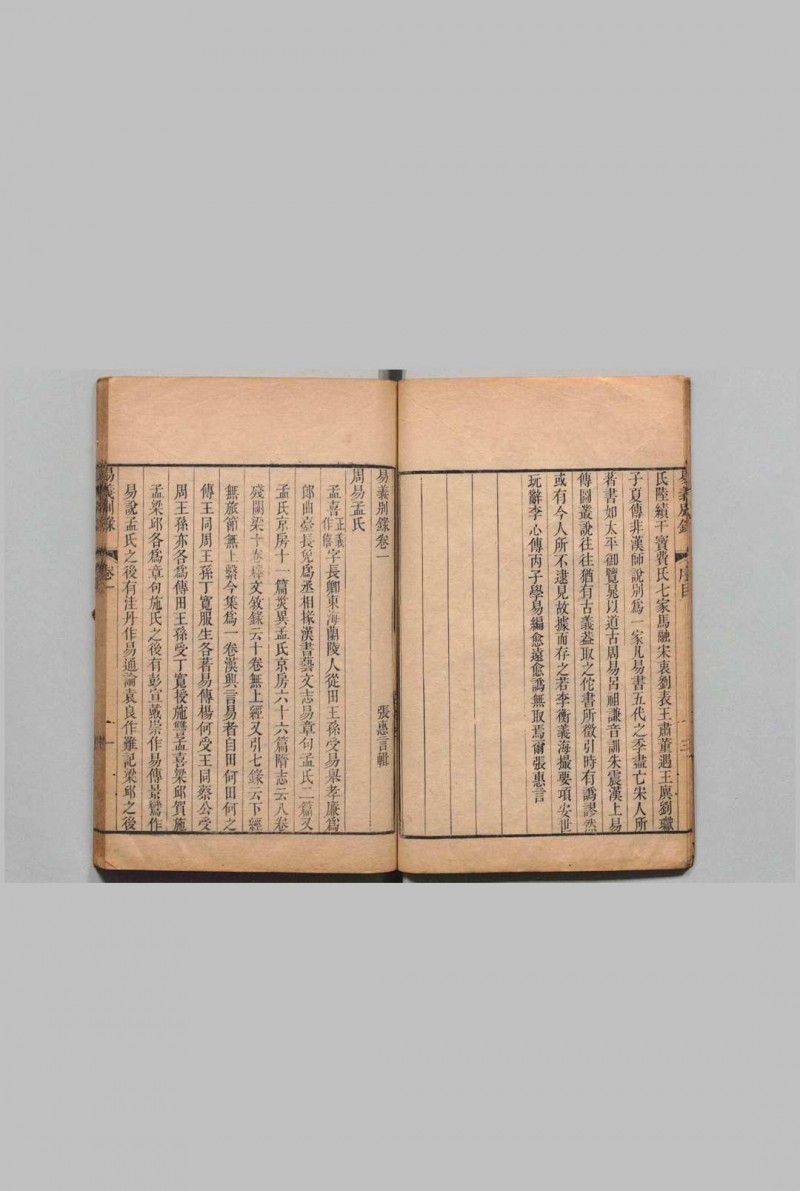 易義別錄 序目 三
氏陸績干寶費氏七家馬融宋衷劉表王肅董遇王廙劉瓛
子夏傳非漢師說別爲一家凡易書五代之季盡亡宋人所
著書如太平御覽晁以道古周易呂祖謙音訓朱震漢上易
傳圖叢說往往猶有古義葢取之佗書所徵引時有譌謬然
或有今人所不逮見故據而存之若李衡義海撮要項安世
玩辭李心傳丙子學易編愈遠愈譌無取焉爾張惠言
易義別錄卷一
張惠言輯
周易孟氏
孟喜正義作僖字長卿東海蘭陵人從田王孫受易舉孝廉爲
郎曲臺長免爲丞相掾漢書藝文志易章句孟氏二篇又
孟氏京房十一篇災異孟氏京房六十六篇隋志云八卷
殘闕梁十卷釋文敘錄云十卷無上經又引七錄云下經
無旅節無上繫今集爲一卷漢興言易者自田何田何之
傳王同周王孫丁寬服生各著易傳楊何受王同蔡公受
周王孫亦各爲傳田王孫受丁寬授施讐孟喜梁邱賀施
孟梁邱各爲章句施氏之後有彭宣戴崇作易傳景鸞作
易說孟氏之後有洼丹作易通論袁良作難記梁邱之後
易義別錄 卷一 一